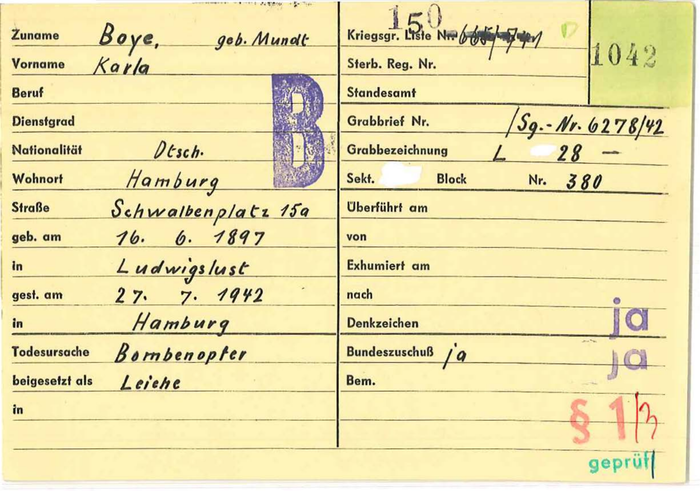 Zuname Boye, geb. Mundt
Vorname Karla
Beruf
Dienstgrad
Nationalität Dtsch.
Wohnort Hamburg
Straße Schwalbenplatz 15a
geb. am 16. 6. 1897
in Ludwigslust
gest. am 27. 7. 1942
in Hamburg
Todesursache Bombenopfer
beigesetzt als Leiche
in
B
150
Kriegsgr. Liste Nr.
1042
Sterb. Reg. Nr.
Standesamt
Grabbrief Nr. /Sg.-Nr. 6278/42
Grabbezeichnung L 28 –
Sekt. Block Nr. 380
Überführt am
von
Exhumiert am
nach
Denkzeichen ja
Bundeszuschuß ja ja
Bem.
§ 1/3
geprüft